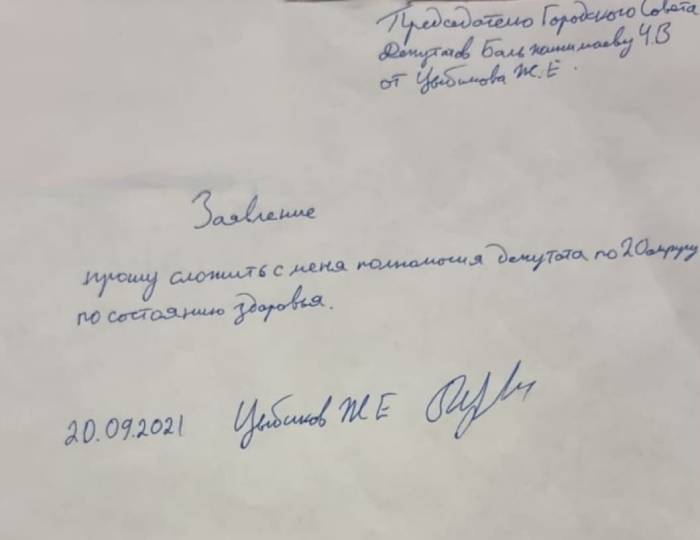 Председателю Городского Совета
Депутатов Бальжинимаеву Ч.В
от Цыбикова Ж.Е.
Заявление
прошу сложить с меня полномочия депутата по 20 округу
по состоянию здоровья.
20.09.2021 Цыбиков Ж Е